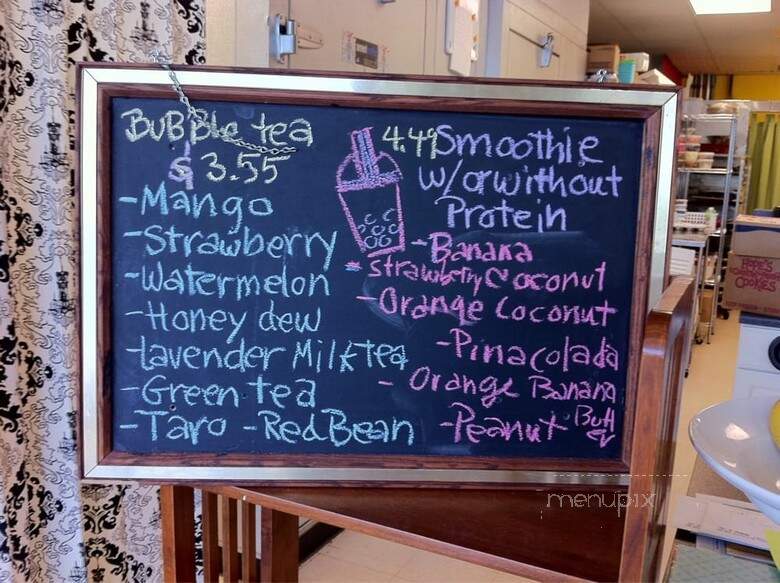 Bubble tea
$3.55
-Mango
-Strawberry
-Watermelon
-Honey dew
-Lavender Milk tea
-Green tea
-Taro -Red Bean
4.49 Smoothie
w/or without
Protein
-Banana
-Strawberry Coconut
-Orange Coconut
-Pina colada
-Orange Banana
-Peanut Butter
COOKIES
menupix